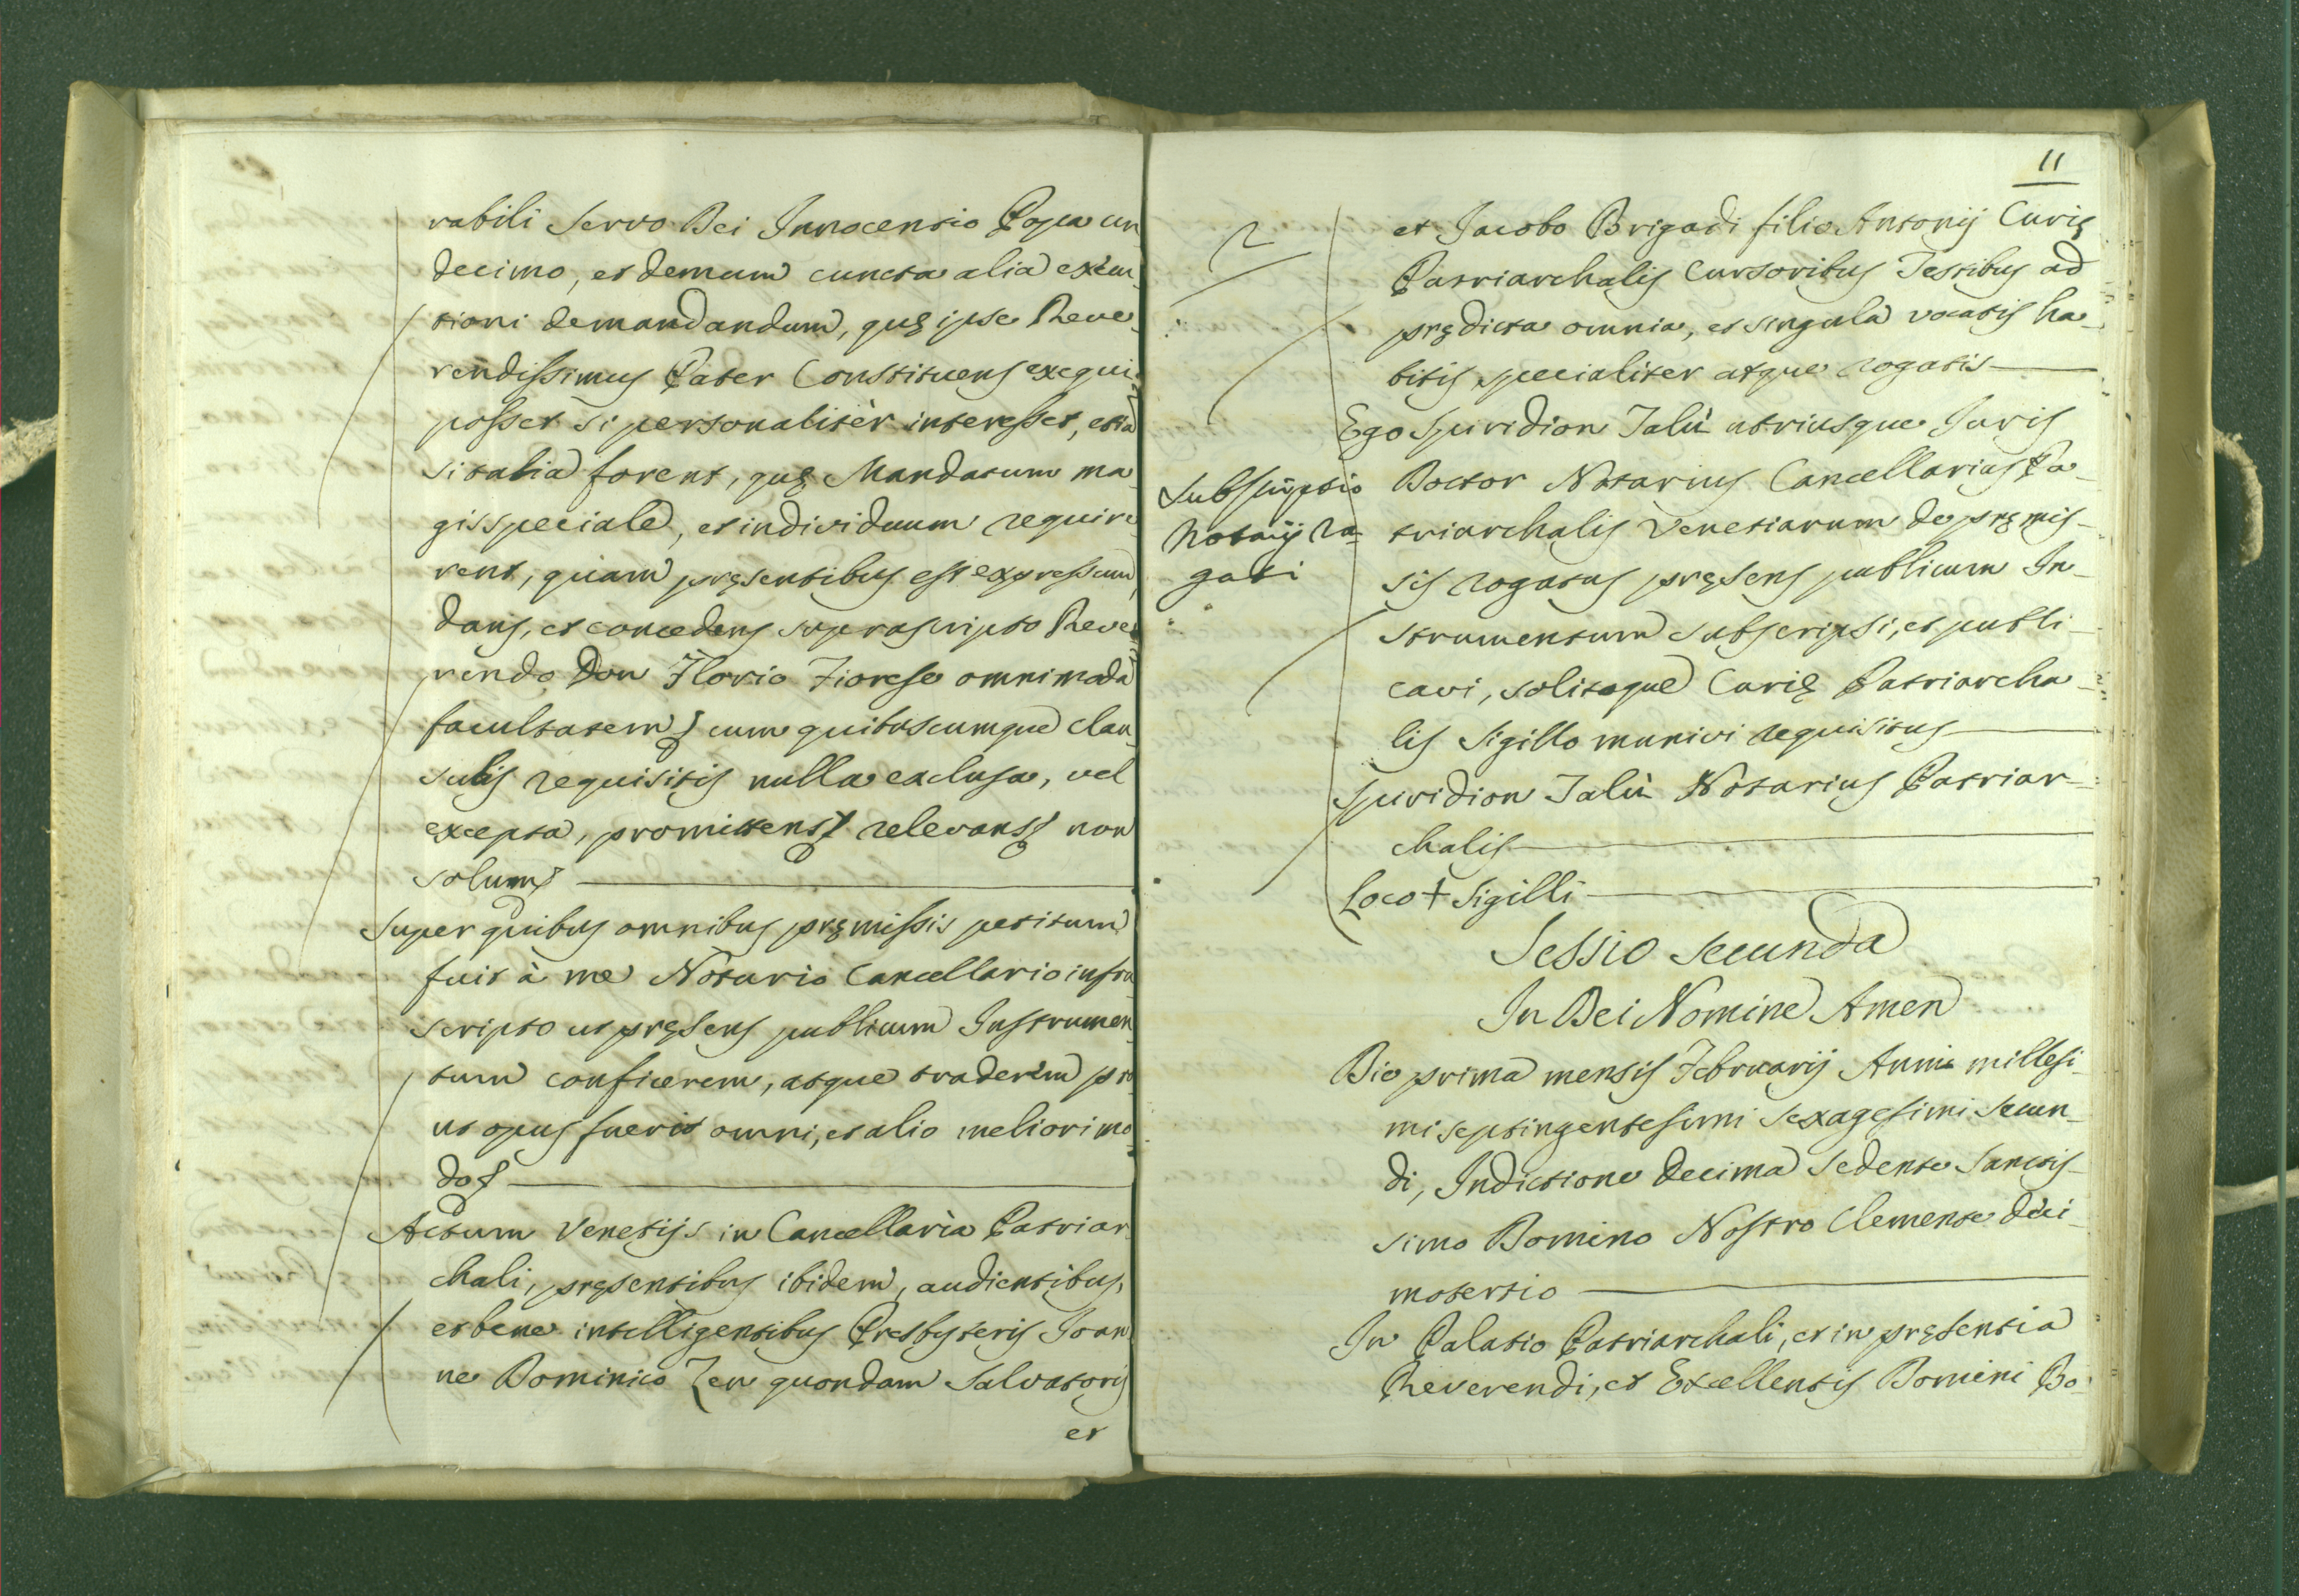 rabili Servo Dei Innocentio Papa un
decimo, et demum cuncta alia exeu
tioni demandandum, quę ipse Reve
rendissimus Pater Constituens exequi
posset si personalitèr interesset, etiã
si talia forent, quę Mandatum ma
gis speciale, et individuum require
rent, quam pręsentibus est expressum,
dans, et concedens suprascripto Reve
rendo Don Florio Fiorese omnimodã
facultatem cum quibuscumque clau
sulis requisitis nulla exclusa, vel
excepta, promittens relevans non
solum
Super quibus omnibus pręmissis petitum
fuit à me Notario Cancellario infra
scripto ut pręsens publicum Instrumen
tum conficerem, atque traderem pro
ut opus fuerit omni, et alio meliori mo
do
Actum Venetijs in Cancellaria Patriar
chali, pręsentibus ibidem, audientibus,
et bene intelligentibus Presbyteris Joan
ne Dominico Zen quondam Salvatoris
et
11
et Jacobo Brigadi filio Antonij Curię
Patriarchalis Cursoribus Testibus ad
prędicta omnia, et singula vocatis ha
bitis specialiter atque rogatis
Ego Spiridion Talù utriusque Juris
Subscriptio
Notarij Ro
gati
Doctor Notarius Cancellarius Pa
triarchalis Venetiarum de pręmis
sis rogatus pręsens publicum In
strumentum subscripsi, et publi
cavi, solitoque Curię Patriarcha
lis Sigillo munivi requisitus
Spiridion Talù Notarius Patriar
chalis
Loco + Sigilli
Sessio secunda
In Dei Nomine Amen
Die prima mensis Februarij Anni millesi
mi septingentesimi sexagesimi secun
di, Indictione Decima Sedente Sanctis
simo Domino Nostro Clemente deci
motertio
In Palatio Patriarchali, et in pręsentia
Reverendi, et Excellentis Domini Do